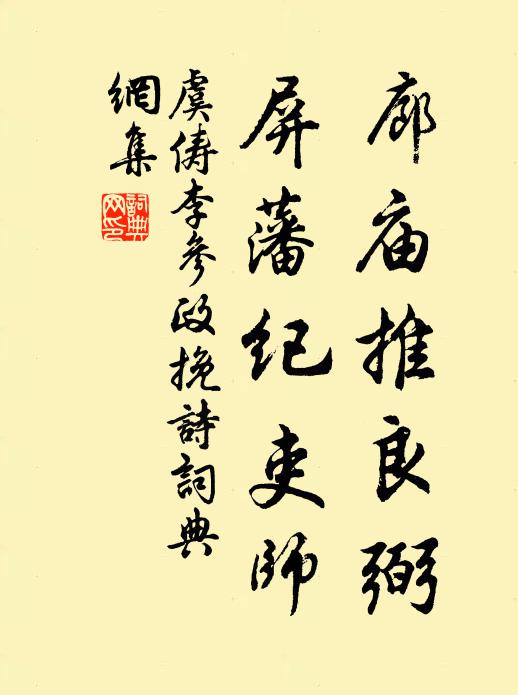 廊庙推良弼
屏藩纪吏師
虞儔李參政挽詩詞典
網集
詞典
网印